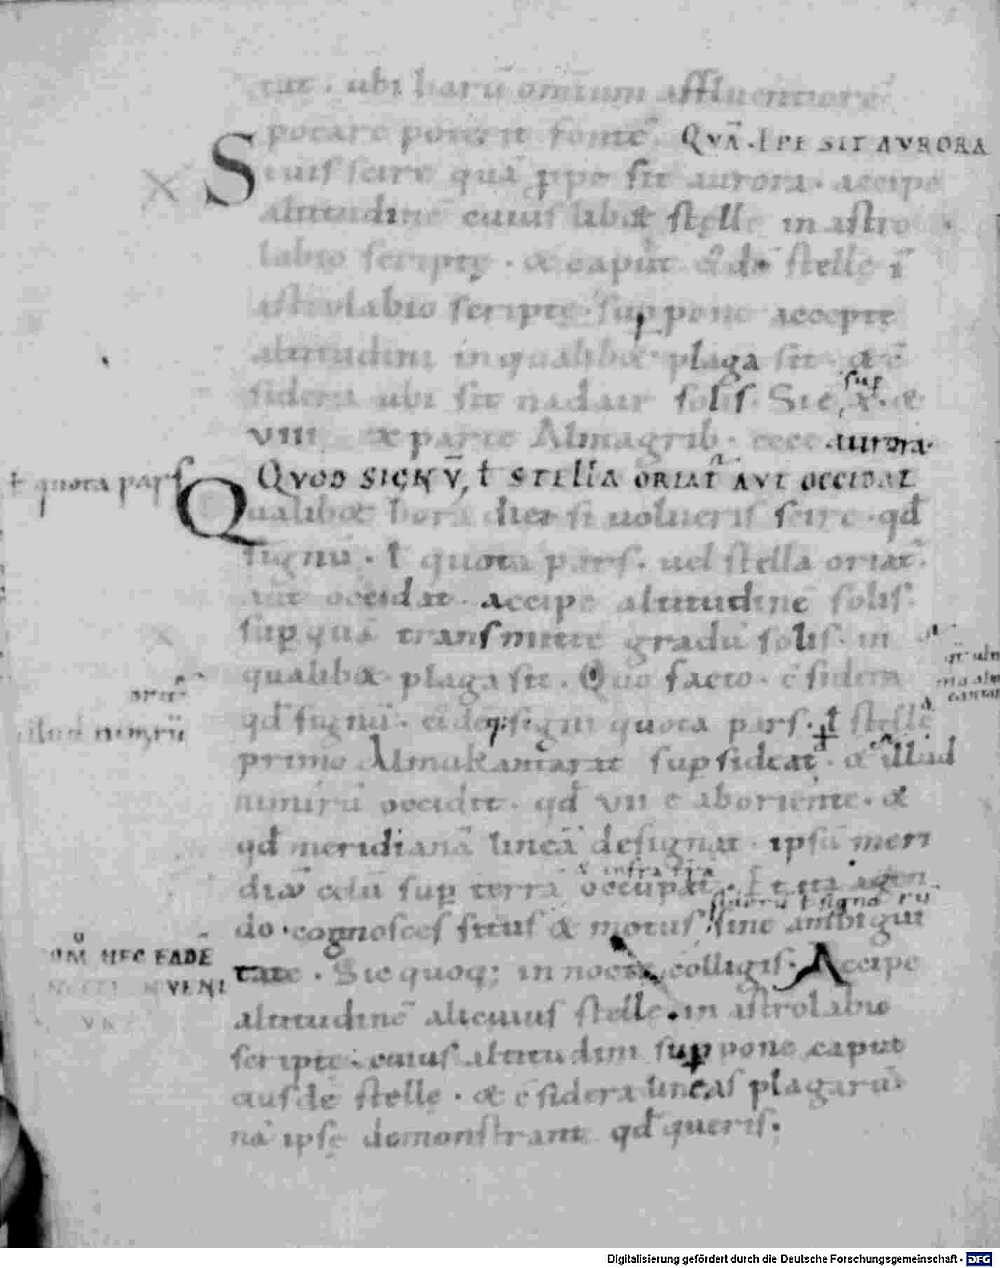 tur. ubi harū omnium affluentiore
potare poterit fonte. QVĀ PPE SIT AVRORA
Si uis scire quā ꝓpe sit aurora. accipe
altitudinē cuiuslib& stellę in astro
labio scriptę. & caput stellę ī
astrolabio scriptę. suppone acceptę
altitudini in qualib& plaga sit. &
sidera ubi sit nadair solis. Si
sup
VIII ex parte Almagrib. ecce aurora.
QVOD SIGNV̄, ƚ STELLA ORIAT̄ AVT OCCIDAT
ƚ quota pars
Qualib& hora diei si uolueris scire. qđ
signū. ƚ quota pars. uel stella oriat̄.
aut occidat. accipe altitudinē solis.
sup quā transmitte gradū solis. in
qualib& plaga sit. Quo facto. c̄sidera
qđ signū. eidēq; signi quota pars. ƚ stellę
illud nimirū
primo Almukantarat supsideat. & illud
nimirū occidit. qđ VII ē ab oriente. &
qđ meridianā lineā designat. ipsū meri
& infra trā
diē celū sup terrā occupat. Et ita agen
do. cognosces situs & motus sine ambigui
OM̄ HEC EADĒ
NOCTI INVENI
tate. Sic quoq; in nocte colligis. Accipe
altitudinē alicuius stellę. in astrolabio
scriptę. cuius altitudini suppone caput
eiusdē stellę. & c̄sidera lineas plagarū.
nā ipsę demonstrant qđ queris.
Digitalisierung gefördert durch die Deutsche Forschungsgemeinschaft - DFG